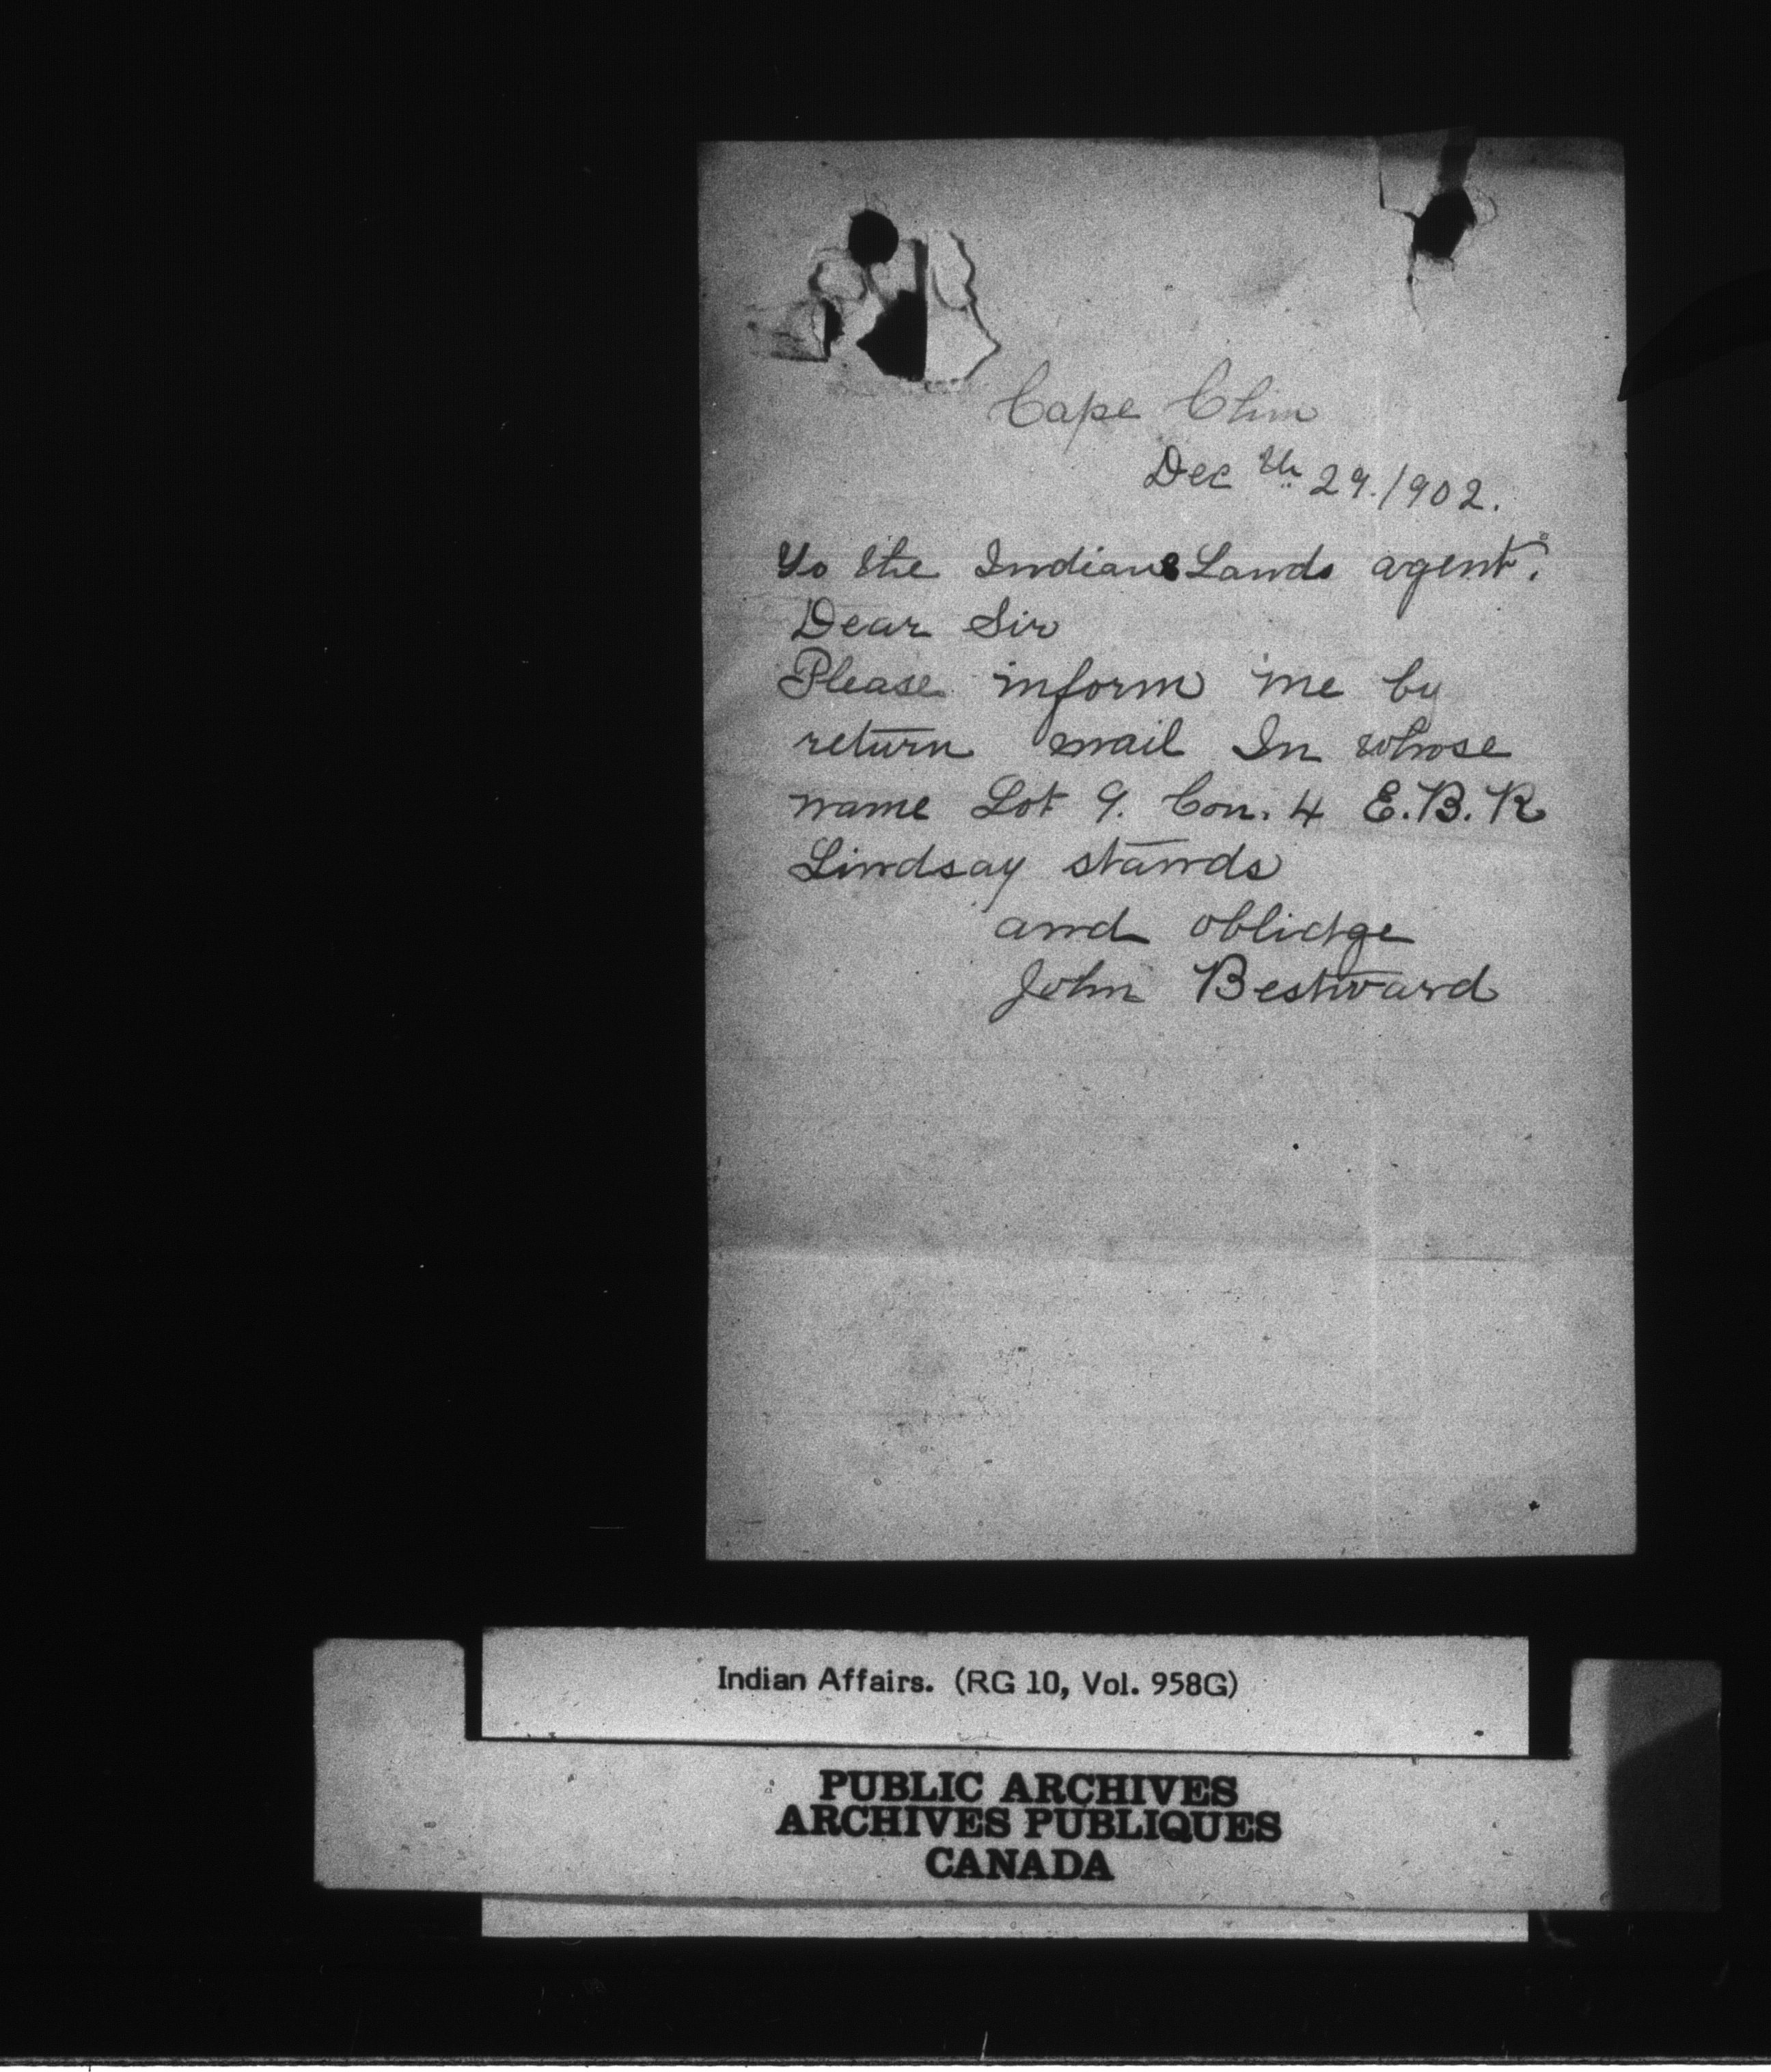 Cape Chin
Dec th 29./1902.
To the Indian Lands agent.
Dear Sir
Please inform me by
return mail In whose
name Lot 9. Con. 4 E.B.R
Lindsay stands
and oblidge
John Bestward
Indian Affairs. (RG 10, Vol. 958G)
PUBLIC ARCHIVES
ARCHIVES PUBLIQUES
CANADA